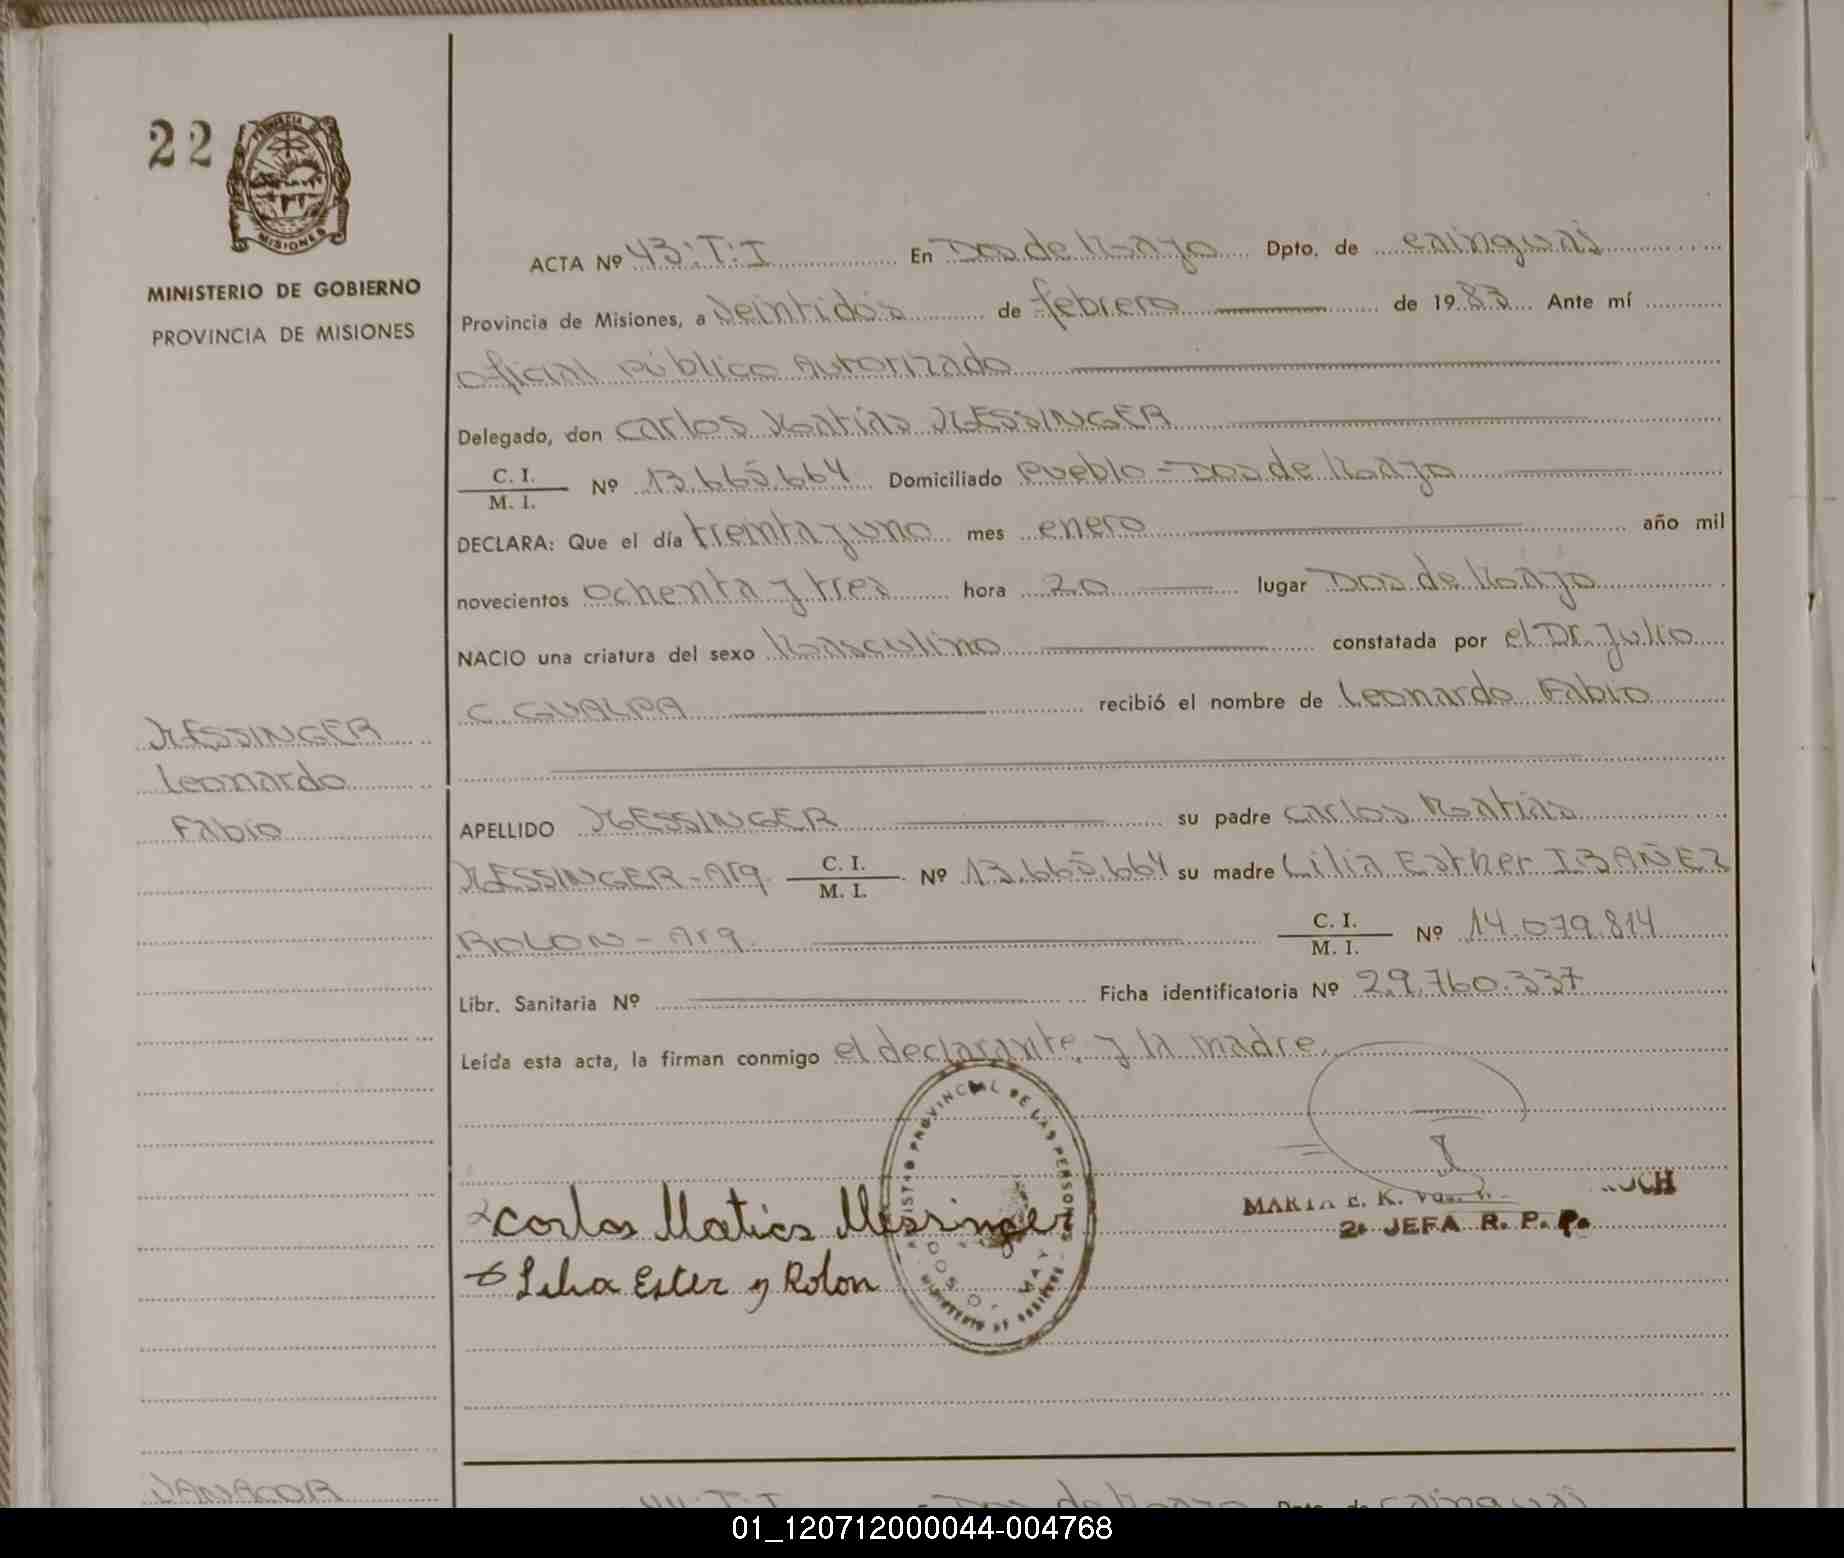 22
PROVINCIA DE
MISIONES
MINISTERIO DE GOBIERNO
PROVINCIA DE MISIONES
MESSINGER
Leonardo
Fabio
ACTA Nº 43:T:I En Dos de Mayo Dpto. de cainguas
Provincia de Misiones, a Veintidos de febrero de 1983 Ante mí
oficial Público Autorizado
Delegado, don Carlos Matias MESSINGER
C. I. / M. I. Nº 13.665.664 Domiciliado Pueblo - Dos de Mayo
DECLARA: Que el día treinta y uno mes enero año mil
novecientos Ochenta y tres hora 20 lugar Dos de Mayo
NACIO una criatura del sexo Masculino constatada por el Dr. Julio
C. GUALPA recibió el nombre de Leonardo Fabio
APELLIDO MESSINGER su padre Carlos Matias
MESSINGER-Arg. C. I. / M. I. Nº 13.665.664 su madre Lilia Esther IBAÑEZ
ROLON - Arg. C. I. / M. I. Nº 14.079.814
Libr. Sanitaria Nº Ficha identificatoria Nº 29.760.337
Leída esta acta, la firman conmigo el declarante, y la madre.
PROVINCIAL DE LAS PERSONAS
DOS D. MAY
Carlos Matias Messinger
Lilia Ester y Rolon
MARIA E. K.
2ª JEFA R. P. P.
JANACOR
44:T:I Dos de Mayo Dpto. de cainguas
01_120712000044-004768